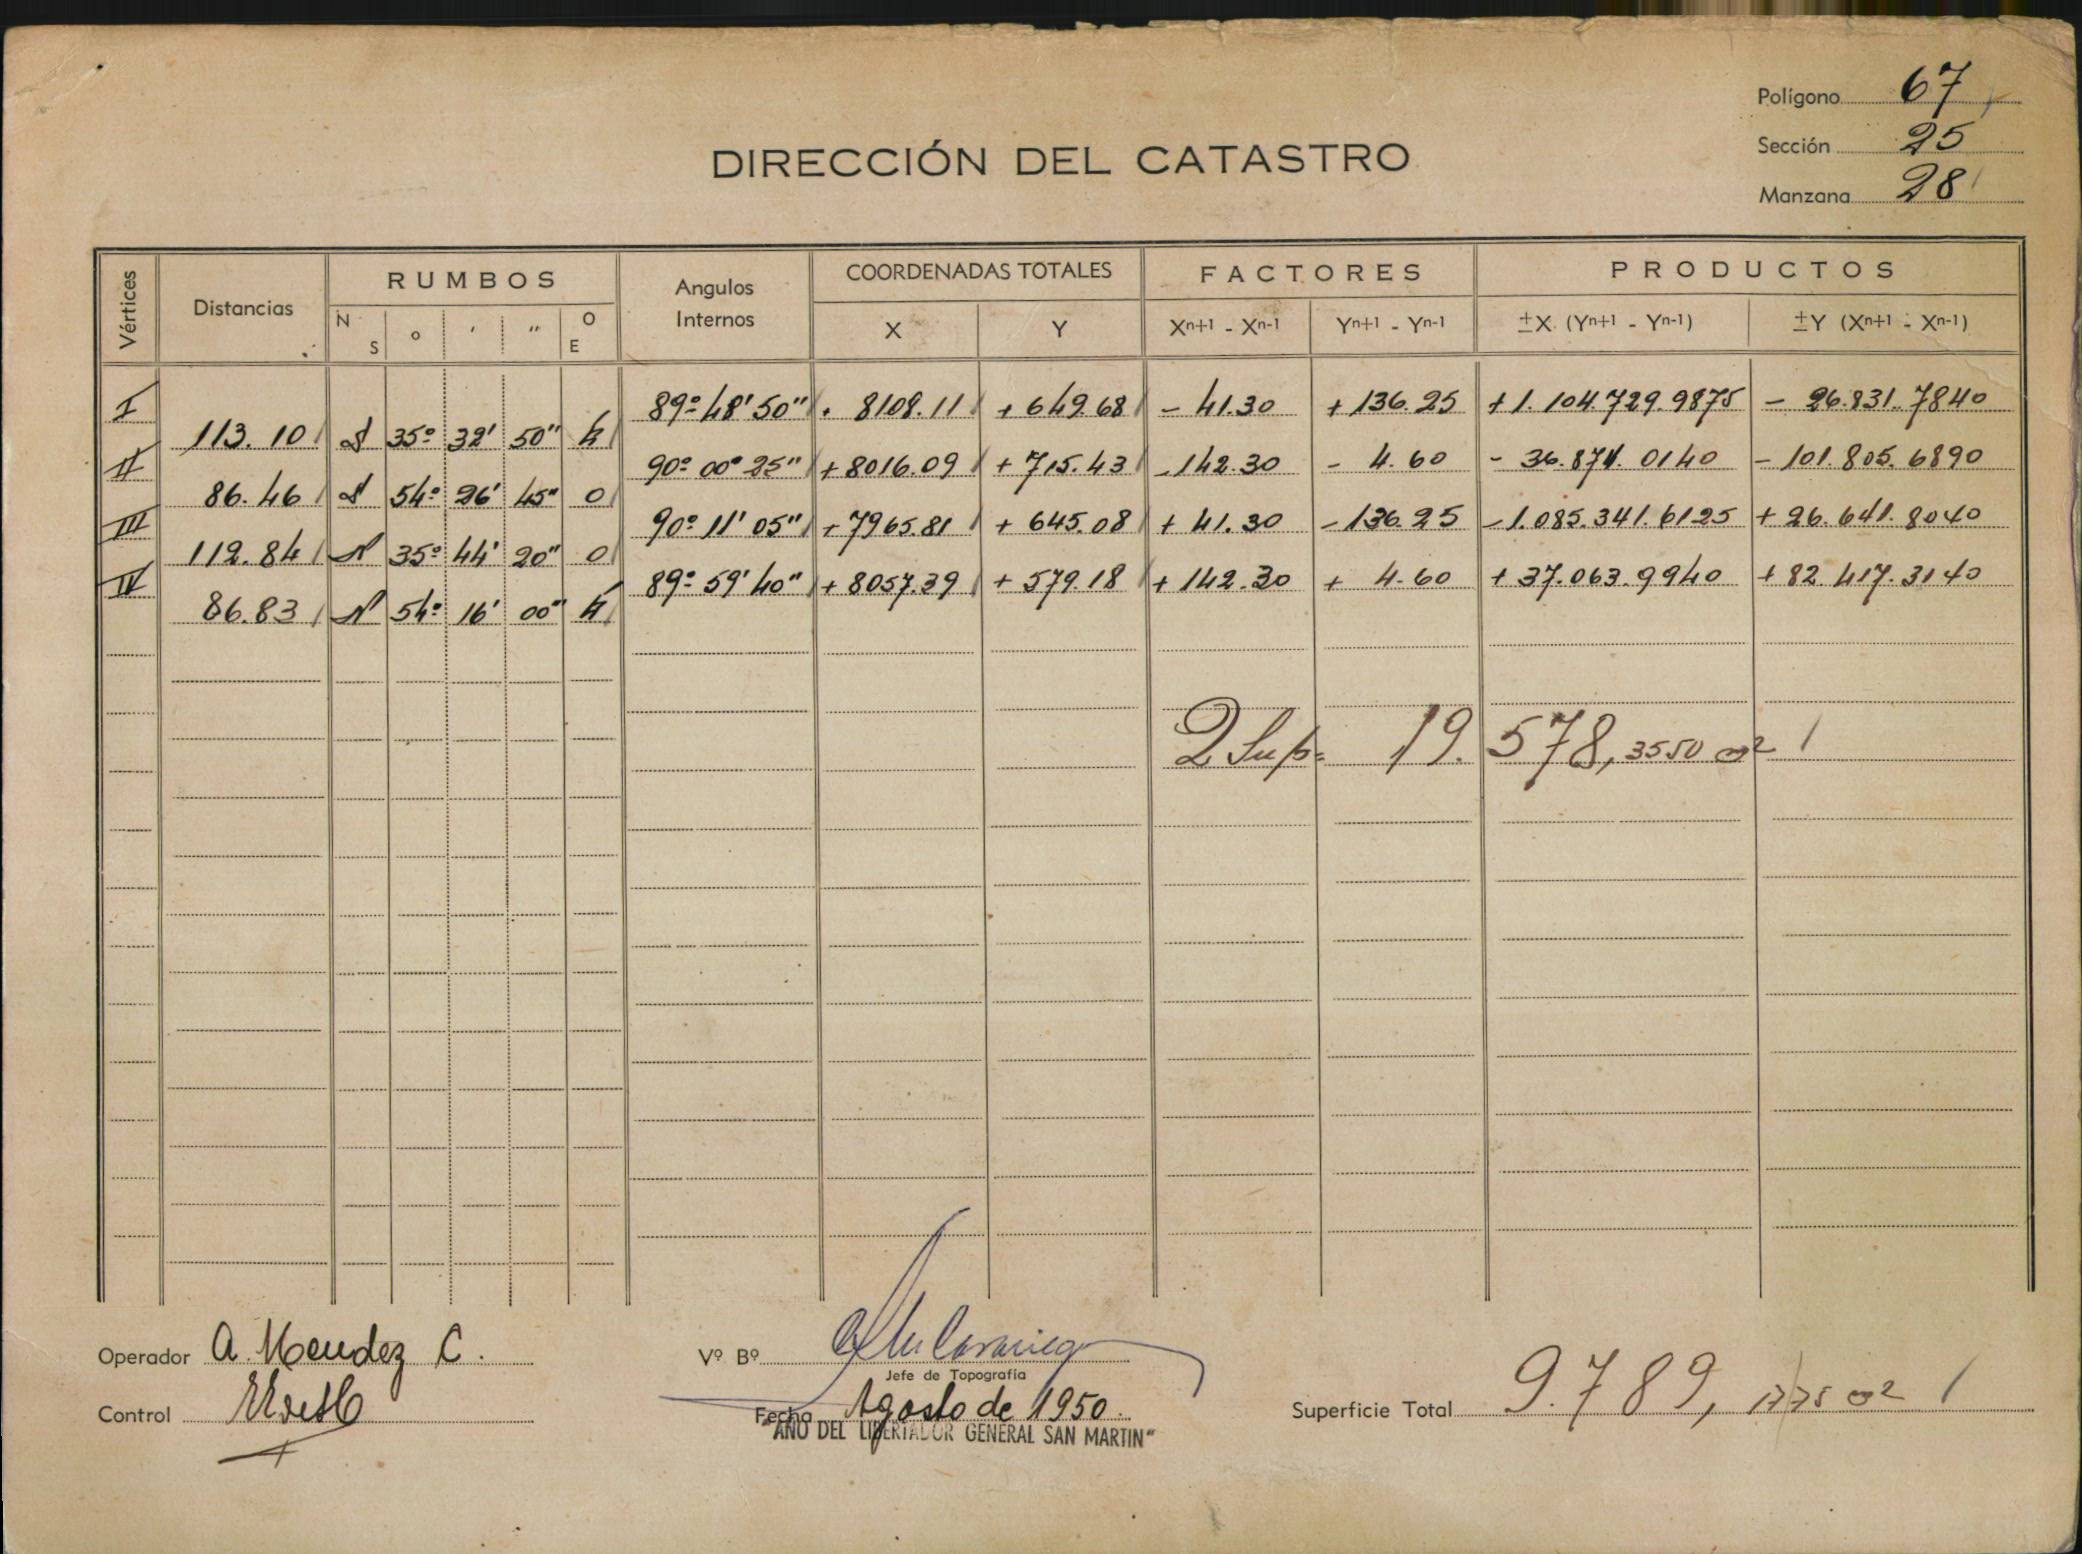 Polígono 67
Sección 25
Manzana 28
DIRECCIÓN DEL CATASTRO
Vértices Distancias RUMBOS Angulos Internos COORDENADAS TOTALES FACTORES PRODUCTOS
N S o ' " O E X Y Xn+1 - Xn-1 Yn+1 - Yn-1 ±X (Yn+1 - Yn-1) ±Y (Xn+1 - Xn-1)
I 89º 48' 50" + 8108.11 + 649.68 - 41.30 + 136.25 + 1.104.729.9875 - 26.831.7840
113.10 S 35º 32' 50" E
II 90º 00º 25" + 8016.09 + 715.43 - 142.30 - 4.60 - 36.874.0140 - 101.805.6890
86.46 S 54º 26' 45" O
III 90º 11' 05" + 7965.81 + 645.08 + 41.30 - 136.25 - 1.085.341.6125 + 26.641.8040
112.84 N 35º 44' 20" O
IV 89º 59' 40" + 8057.39 + 579.18 + 142.30 + 4.60 + 37.063.9940 + 82.417.3140
86.83 N 54º 16' 00" E
2 Sup= 19.578,3550 m2
Operador A. Mendez C. Vº Bº
Jefe de Topografía
Control Fecha Agosto de 1950. Superficie Total 9.789,1775 m2
"AÑO DEL LIBERTADOR GENERAL SAN MARTIN"